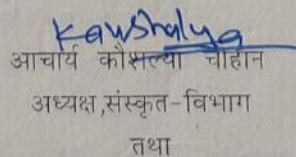 Kawshalya
आचार्य कौशल्या चौहान
अध्यक्ष,संस्कृत-विभाग
तथा